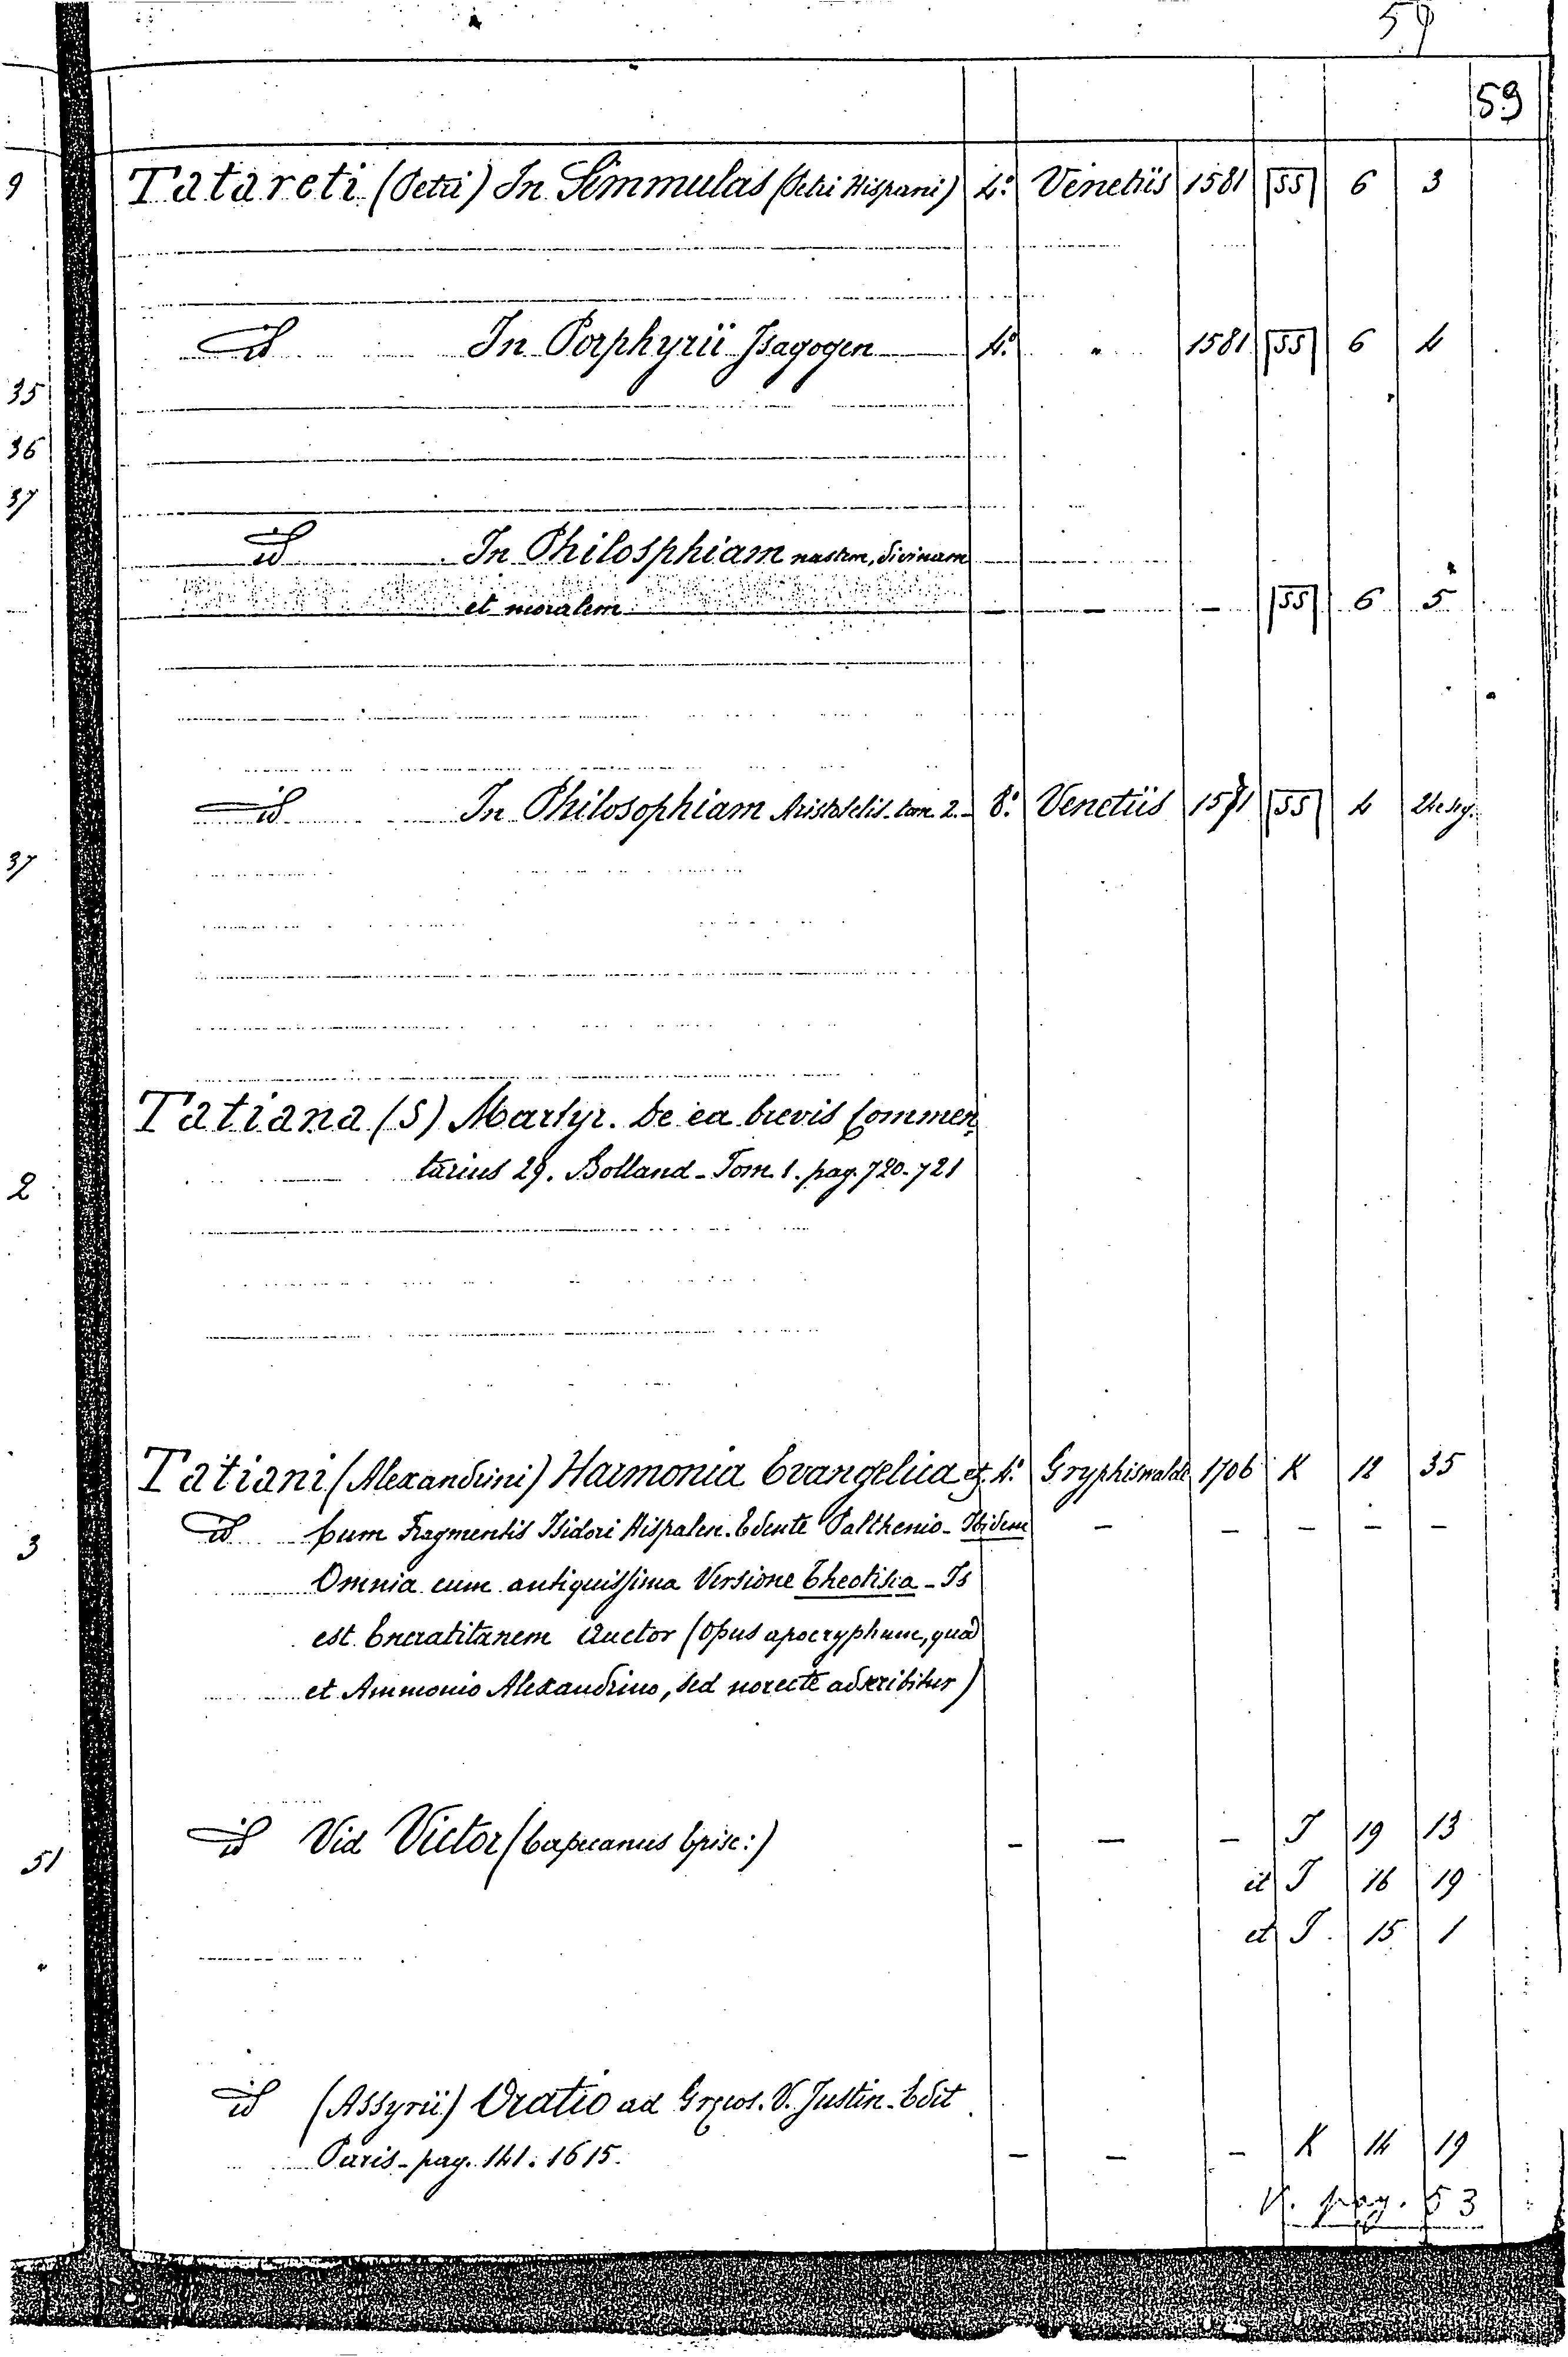 59
59
Tatareti (Petri) In Simmulas (Petri Hispani) 4.º Venetiis 1581 SS 6 3
id In Porphyrii Isagogen 4.º " 1581 SS 6 4
id In Philosphiam natlem, divinam
et moralem — — — SS 6 5
id In Philosophiam Aristotelis tom. 2. 8.º Venetiis 1571 SS 4 24 e seg.
Tatiana (S) Martyr. De ea brevis Commen
tarius 29. Bolland - Tom. 1. pag. 720-721
Tatiani (Alexandrini) Harmonia Evangelica et 4.º Gryphiswalde 1706 K 12 35
id Cum Fragmentis Isidori Hispalen. Edente Palthenio - Ibidem — — — — —
Omnia cum antiquissima Versione Theotisca - Is
est Encratitarum Auctor (Opus apocryphum, quod
et Ammonio Alexandrino, sed no recte adscribitur)
id Vid Victor (Capuanus Episc:) — — — J 19 13
et J 16 19
et J 15 1
id (Assyrii) Oratio ad Græcos. V. Justin. Edit
Paris - pag. 141. 1615. — — — K 14 19
V. pag. 53
9
35
36
37
37
2
3
51